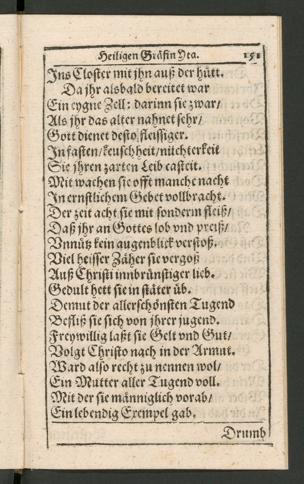 Heiligen Gräfin Yta. 151
Ins Closter mit jhn auß der hütt.
Da jhr alsbald bereitet war
Ein eygne Zell: darinn sie zwar/
Als jhr das alter nahnet sehr/
Gott dienet desto fleissiger.
In fasten/keuschheit/nüchterkeit
Sie jhren zarten Leib casteit.
Mit wachen sie offt manche nacht
In ernstlichem Gebet vollbracht.
Der zeit acht sie mit sonderm fleiß/
Daß jhr an Gottes lob vnd preiß/
Vnnütz kein augenblick verstoß.
Viel heisser Zäher sie vergoß
Auß Christi innbrünstiger lieb.
Gedult hett sie in stäter üb.
Demut der allerschönsten Tugend
Befliß sie sich von jhrer jugend.
Freywillig laßt sie Gelt vnd Gut/
Volgt Christo nach in der Armut.
Ward also recht zu nennen wol/
Ein Mutter aller Tugend voll.
Mit der sie männiglich vorab/
Ein lebendig Exempel gab.
Drumb